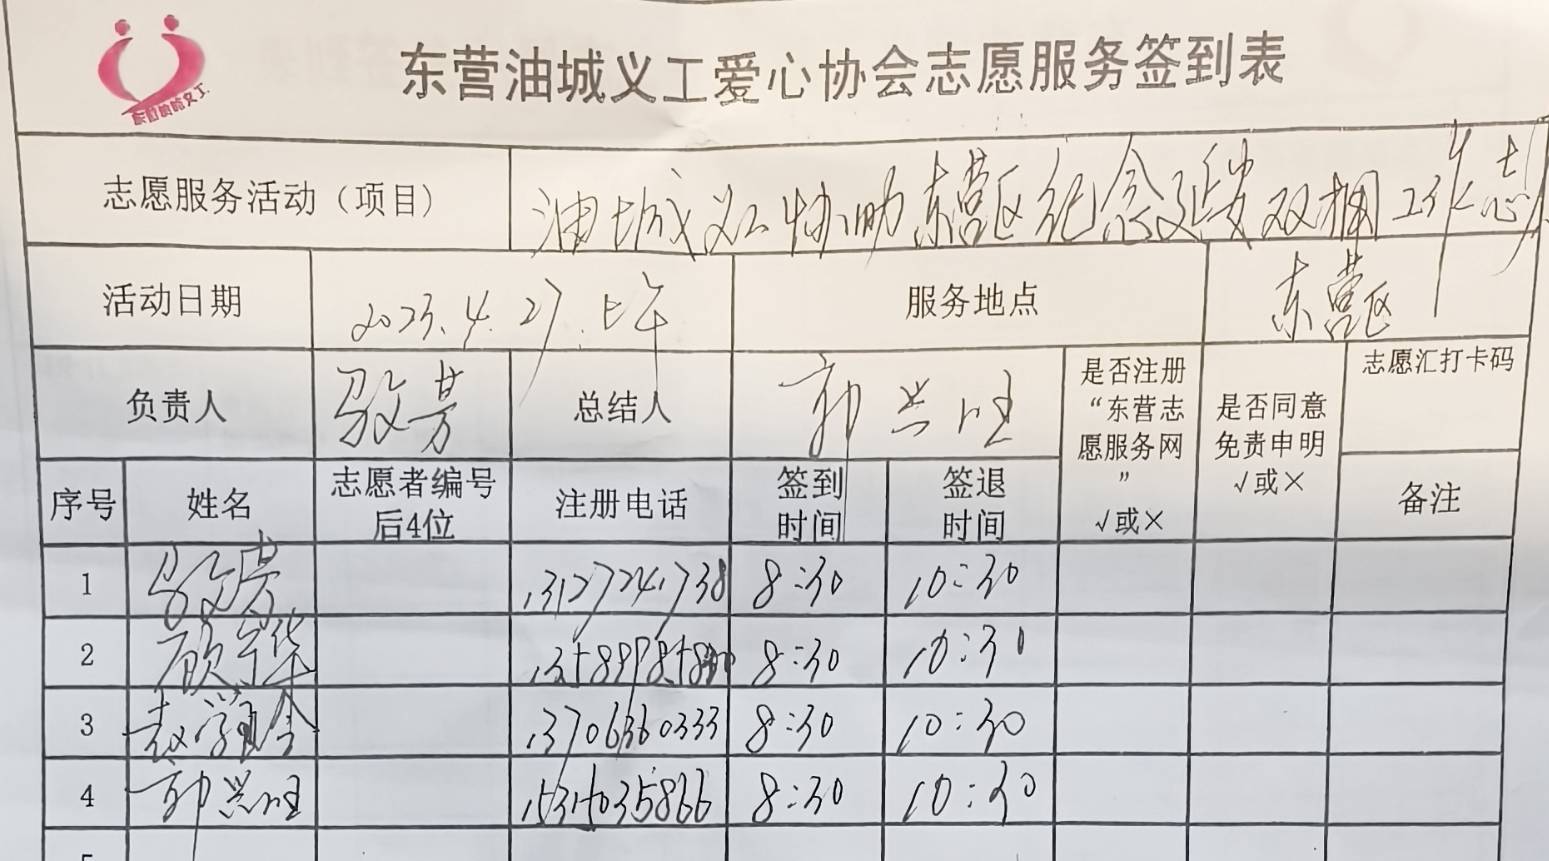 东营油城义工爱心协会志愿服务签到表
志愿服务活动（项目） 油城义工协助东营区纪念延安双拥工作志
活动日期 2023.4.27.上午 服务地点 东营区
负责人 敬芳 总结人 郭兴旺 是否注册“东营志愿服务网”√或× 是否同意免责申明√或× 志愿汇打卡码
序号 姓名 志愿者编号后4位 注册电话 签到时间 签退时间 备注
1 敬芳 13127241738 8:30 10:30
2 8:30 10:30
3 13706360333 8:30 10:30
4 郭兴旺 8:30 10:30
5